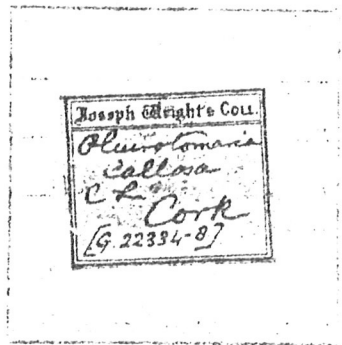 Joseph Wright's Coll.
Pleurotomaria
callosa
C. L.
Cork
[G. 22334-8]